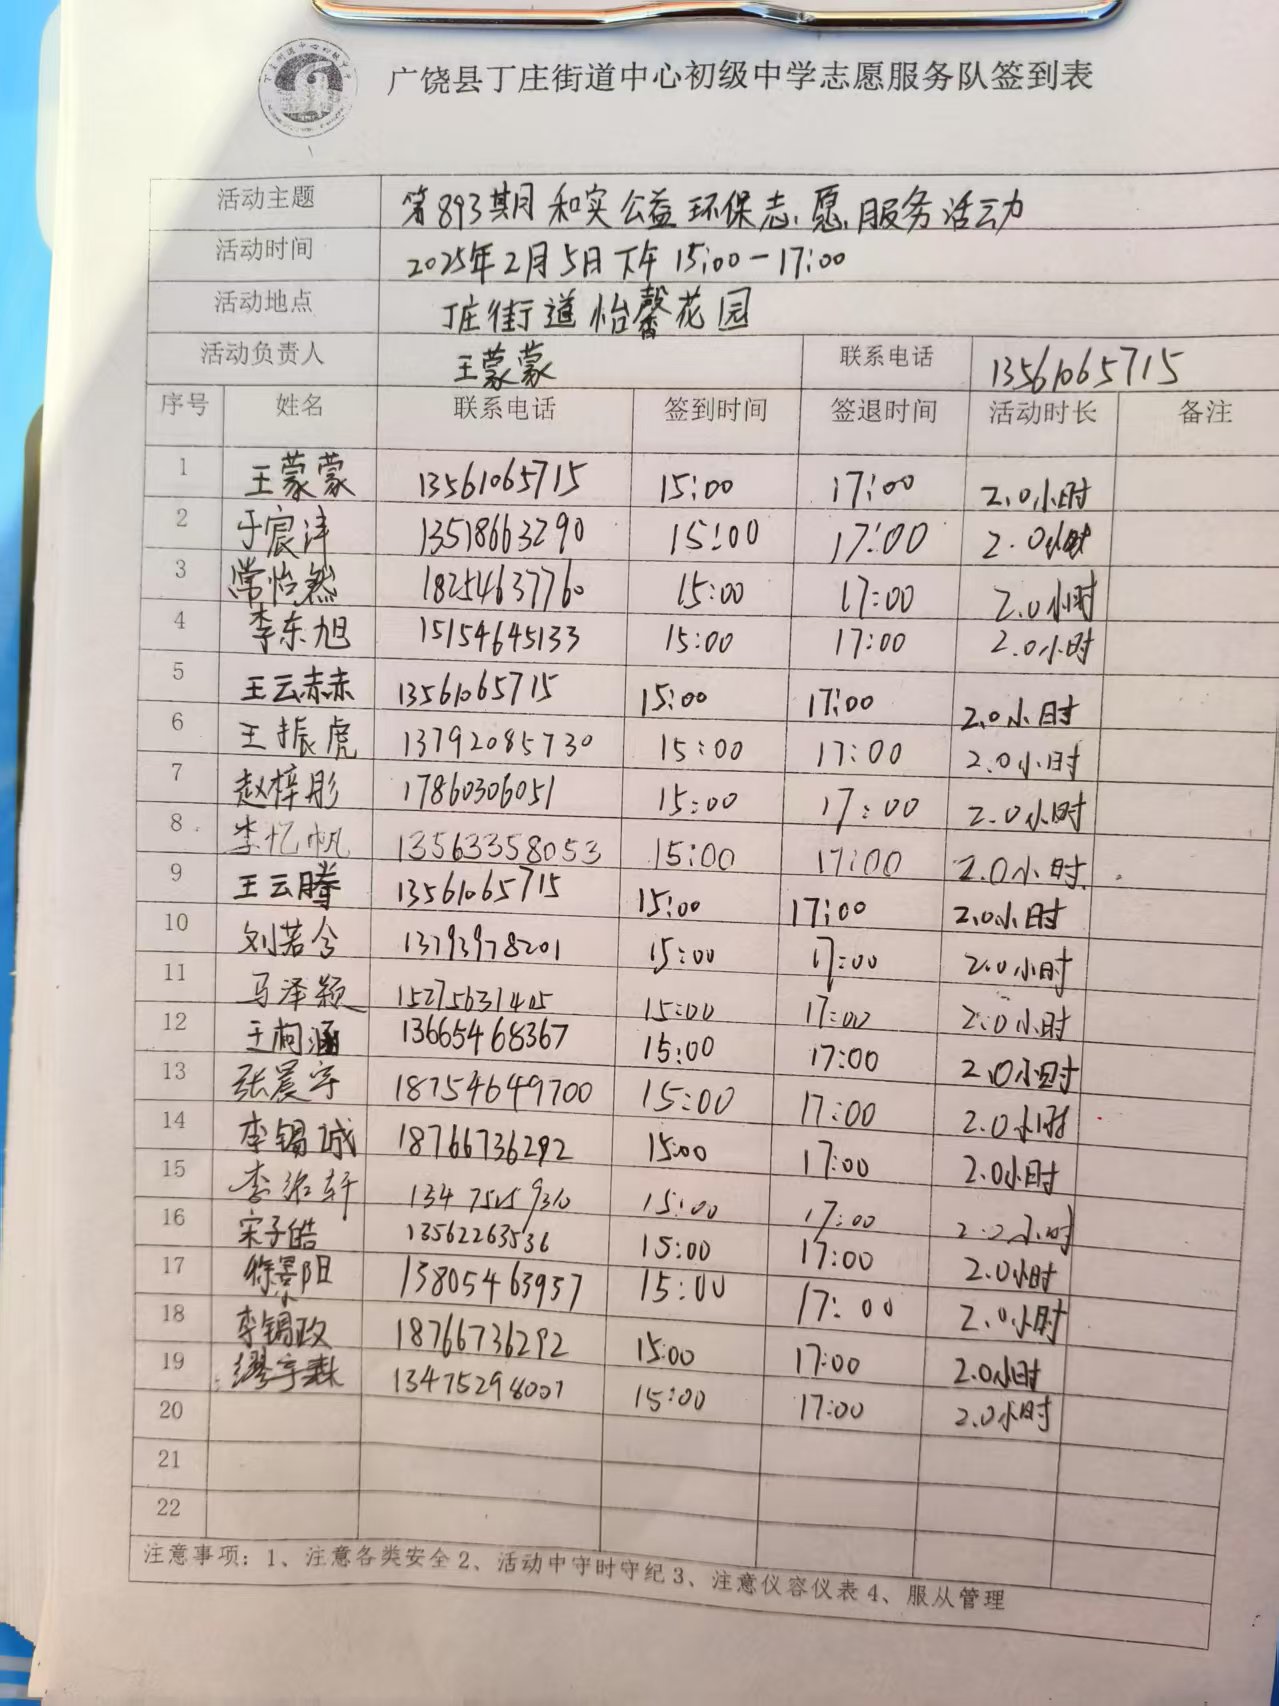 广饶县丁庄街道中心初级中学志愿服务队签到表
活动主题 第893期和实公益环保志愿服务活动
活动时间 2025年2月5日下午15:00-17:00
活动地点 丁庄街道怡馨花园
活动负责人 王蒙蒙 联系电话 13561065715
序号 姓名 联系电话 签到时间 签退时间 活动时长 备注
1 王蒙蒙 13561065715 15:00 17:00 2.0小时
2 于宸沣 13518663290 15:00 17:00 2.0小时
3 常怡然 18254637760 15:00 17:00 2.0小时
4 李东旭 15154645133 15:00 17:00 2.0小时
5 王云赫 13561065715 15:00 17:00 2.0小时
6 王振虎 13792085730 15:00 17:00 2.0小时
7 赵梓彤 17860306051 15:00 17:00 2.0小时
8 李忆帆 13563358053 15:00 17:00 2.0小时
9 王云腾 13561065715 15:00 17:00 2.0小时
10 刘若兮 13793978201 15:00 17:00 2.0小时
11 马泽颖 15275631405 15:00 17:00 2.0小时
12 王柯涵 13665468367 15:00 17:00 2.0小时
13 张晨宇 18754649700 15:00 17:00 2.0小时
14 李锡城 18766736292 15:00 17:00 2.0小时
15 15:00 17:00
16 宋子皓 13562263536 15:00 17:00 2.0小时
17 徐景阳 13805463957 15:00 17:00 2.0小时
18 李锡政 18766736292 15:00 17:00 2.0小时
19 缪宇森 13475298007 15:00 17:00 2.0小时
20
21
22
注意事项：1、注意各类安全2、活动中守时守纪3、注意仪容仪表4、服从管理